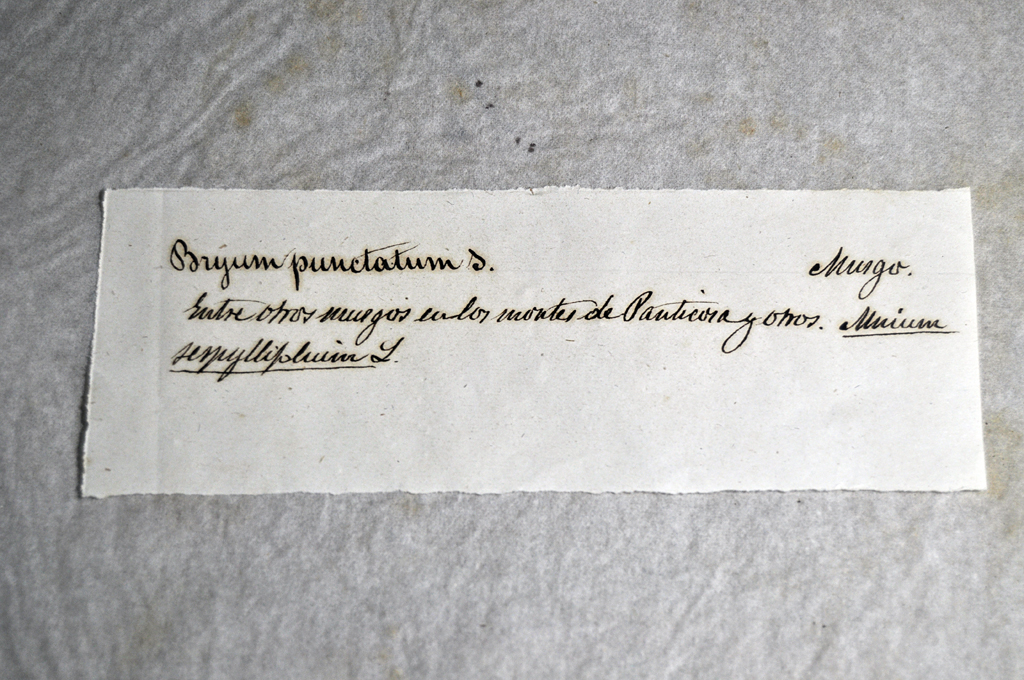 Bryum punctatum S. Musgo.
Entre otros musgos en los montes de Panticosa y otros. Mnium
serpyllipluim L.